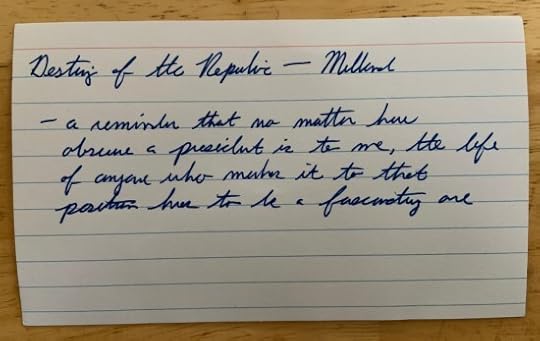 Destiny of the Republic — Millard
- a reminder that no matter how
obscure a president is to me, the life
of anyone who makes it to that
position has to be a fascinating one